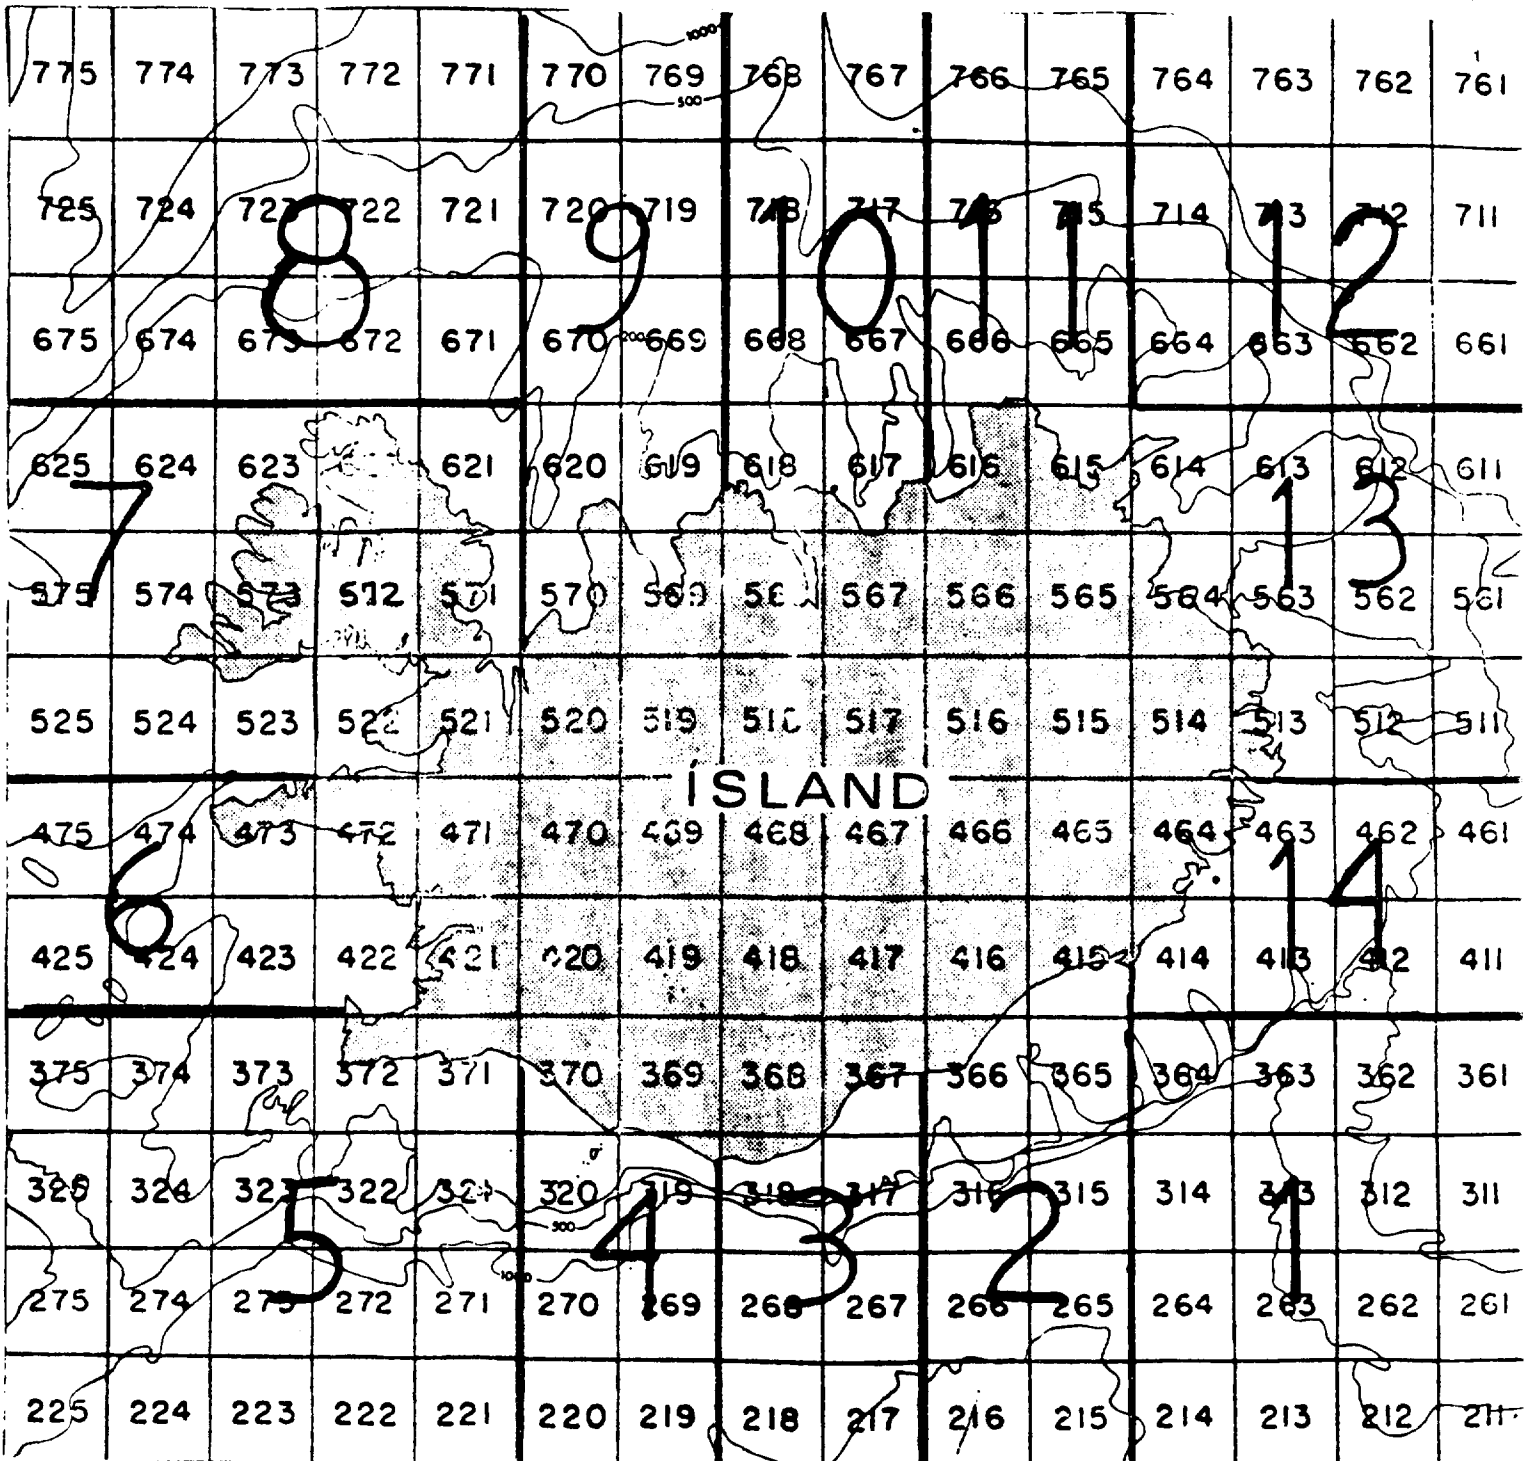 1000
775 774 773 772 771 770 769 768 767 766 765 764 763 762 761
500
725 724 723 722 721 720 719 718 717 716 715 714 713 712 711
8 9 10 11 12
675 674 673 672 671 670 200 669 668 667 666 665 664 663 662 661
625 624 623 621 620 619 618 617 616 615 614 613 612 611
7 13
575 574 573 572 571 570 569 567 566 565 564 563 562 561
525 524 523 522 521 520 519 517 516 515 514 513 512 511
ÍSLAND
475 474 473 472 471 470 469 468 467 466 465 464 463 462 461
6 14
425 424 423 422 421 420 419 418 417 416 415 414 413 412 411
375 374 373 372 371 370 369 368 367 366 365 364 363 362 361
325 324 323 322 321 320 319 318 317 316 315 314 313 312 311
500
5 4 3 2 1
1000
275 274 273 272 271 270 269 268 267 266 265 264 263 262 261
225 224 223 222 221 220 219 218 217 216 215 214 213 212 211